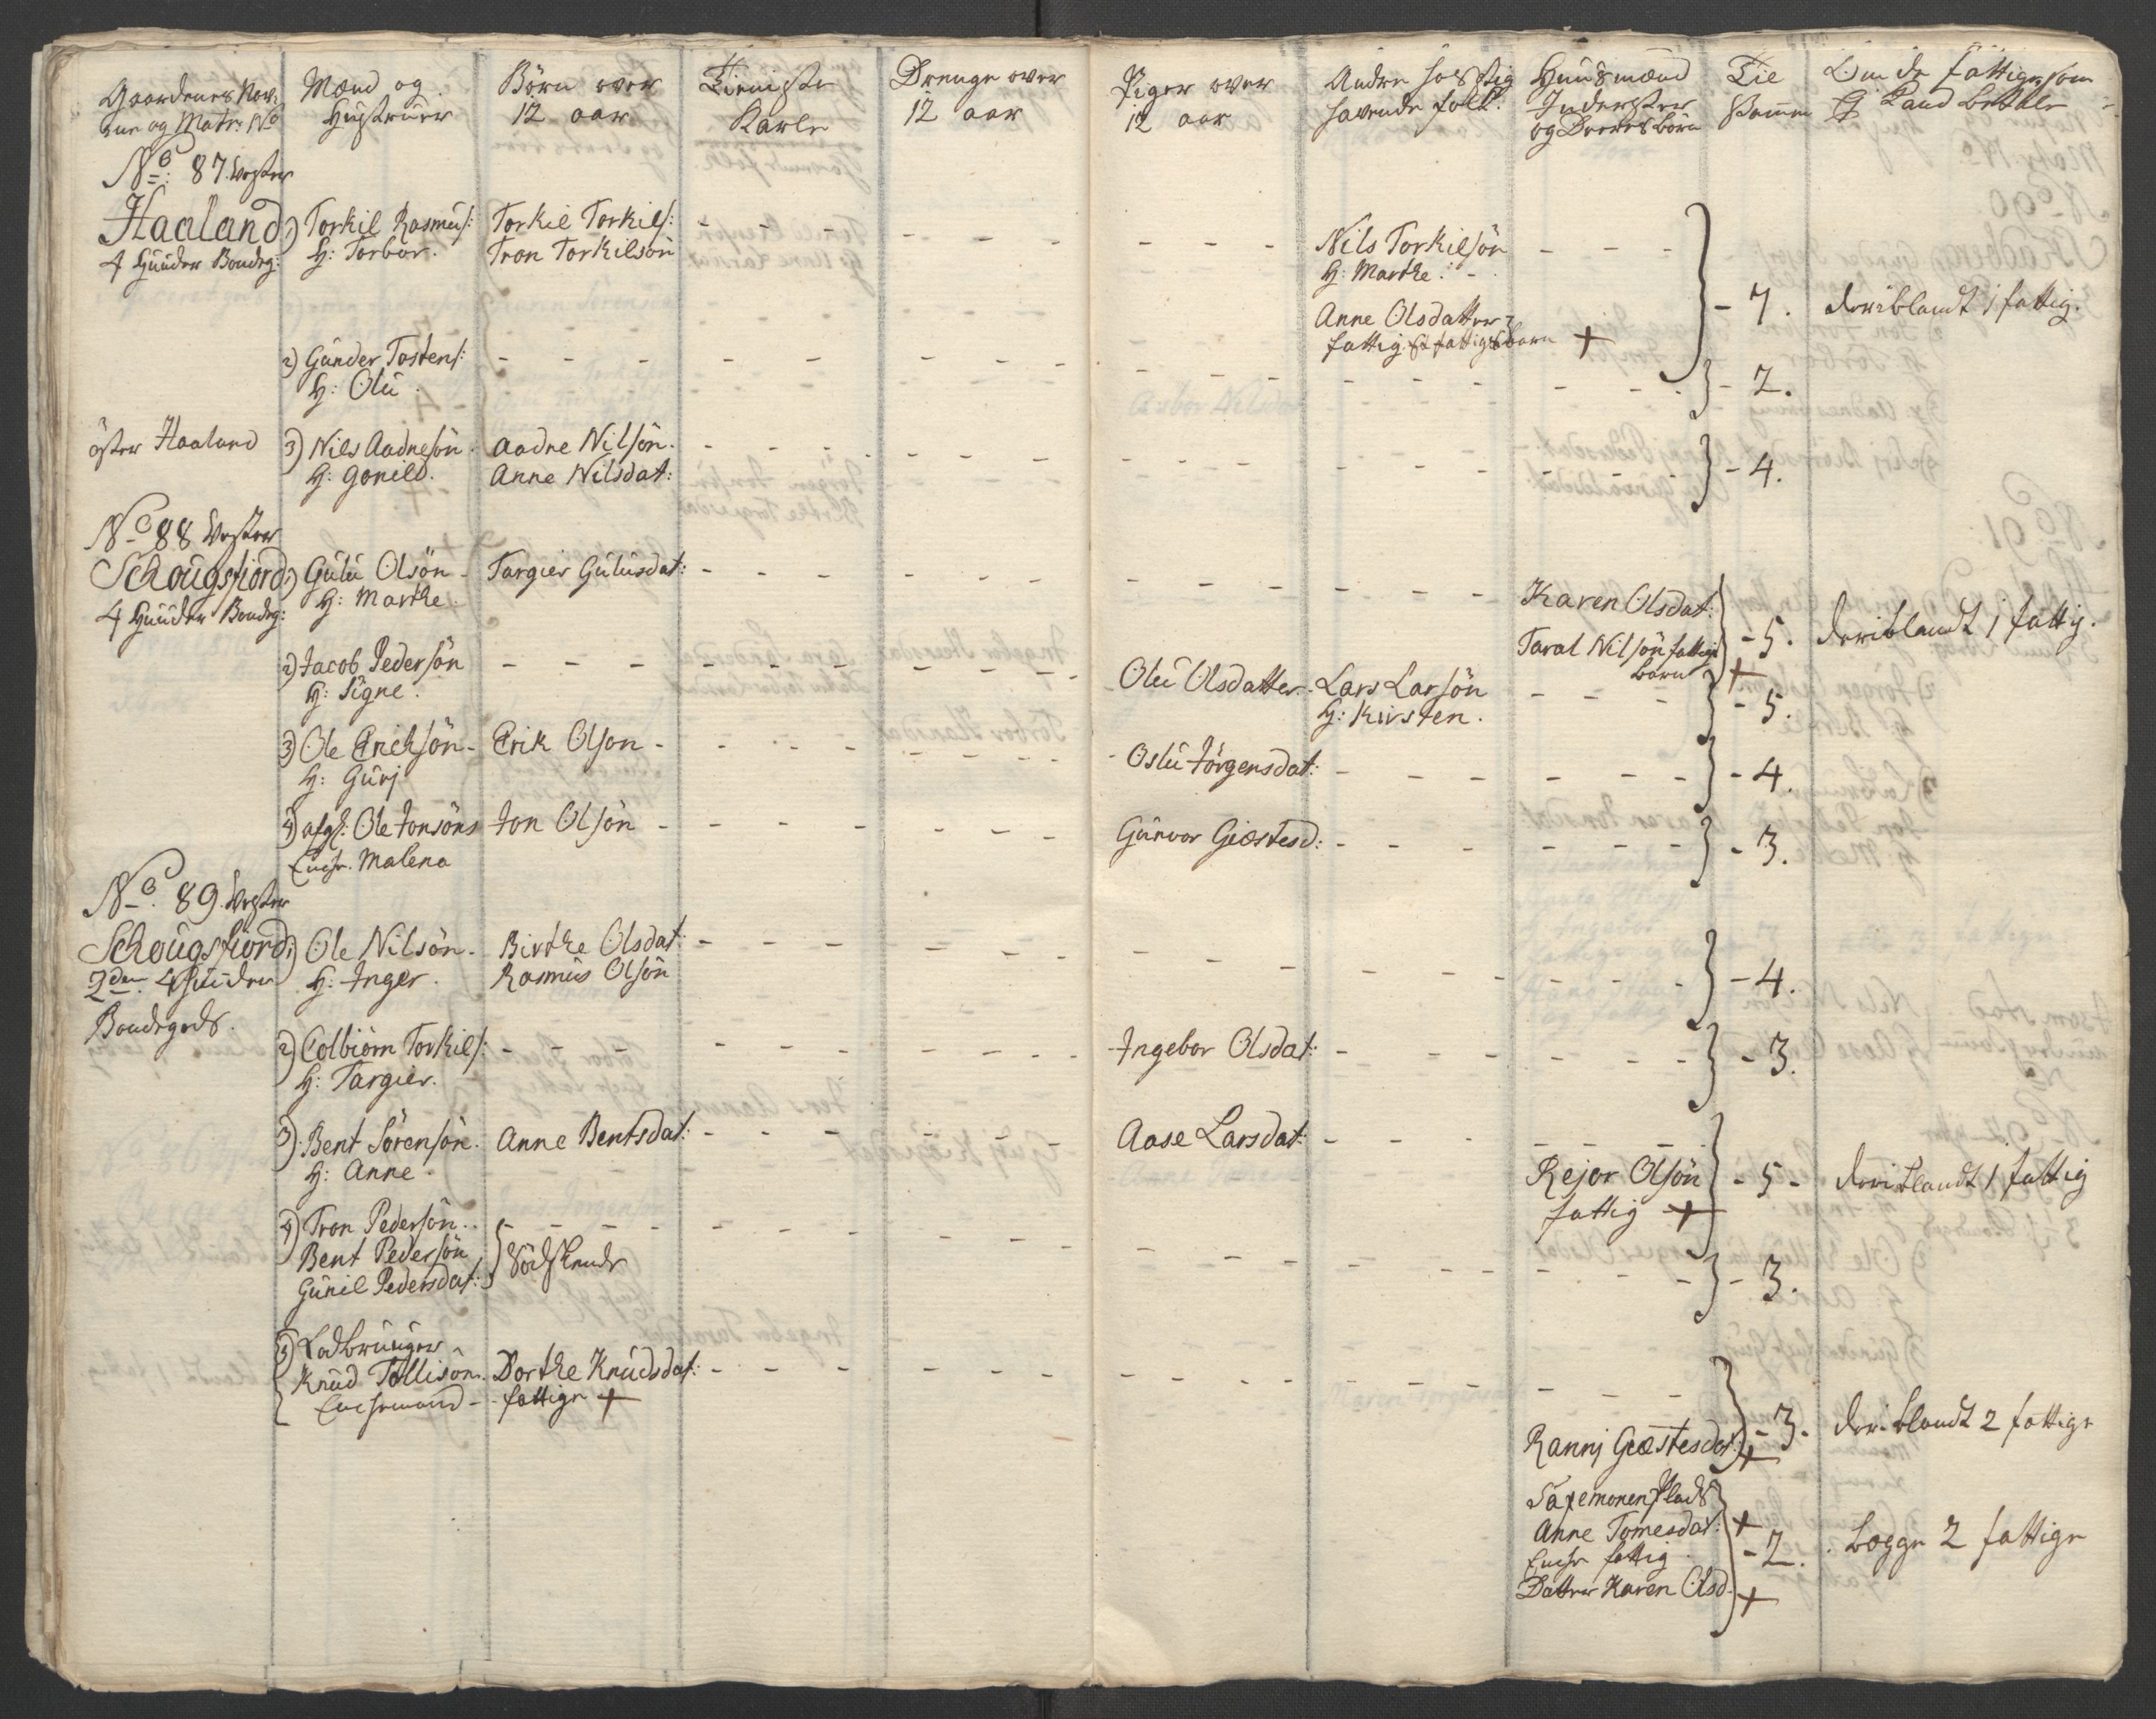 Gaardenes Nav-
ne og Matr: No
Mænd og
Hustruer
Børn over
12 aar
Tieniste
Karle
Drenge over
12 aar
Piger over
12 aar
Andre hos sig
havende folk.
Huusmænd
Inderster
og Deres børn
Til
Samm
Om de fattige som
Ej Kand betale
No: 87. Vester
Haaland
4 Huuder Bondeg:
1) Torkil Rasmus:
H: Torbor.
Torkil Torkils:
Tron Torkilsön
Nils Torkilsön
H: Marthe.
Anne Olsdatter
fattig
- 7. deriblandt 1 fattig.
2) Gunder Tostens:
H: Olu
- 2.
öster Haaland
3) Nils Aadnesön
H: Gonild.
Aadne Nilsön.
Anne Nilsdat:
- 4.
No 88 Vester
Schougsfiord
4 Huuder Bondeg:
1) Gulu Olsön
H: Marthe
Targier Gulusdat:
Karen Olsdat:
Taral Nilsön fattig
barn +
- 5. deriblandt 1 fattig.
2) Jacob Pedersön
H: Signe.
Olu Olsdatter.
Lars Larsön
H: Kirsten.
- 5.
3) Ole Erichsön
H: Gurj
Erik Olson
Oslu Jörgensdat:
- 4.
4) afg: Ole Jonsöns
Enche. Malena
Jon Olsön
Gunvor Giæstesd:
- 3.
No. 89. Vester
Schougsfiord
2den 4 Huuder
Bondegods.
1) Ole Nilsön.
H: Inger.
Birthe Olsdat:
Rasmus Olsön
- 4.
2) Colbiörn Torkils:
H: Targier.
Ingebor Olsdat:
- 3.
3) Bent Sörensön.
H: Anne.
Anne Bentsdat:
Aase Larsdat:
Rejor Olsön
fattig +
- 5 - deriblandt 1 fattig
4) Tron Pedersön.
Bent Pedersön
Gunil Pedersdat:
Södskende
- 3.
5) Lodbruuger
Knud Tollisön.
Enchemand -
Dorthe Knudsdat:
fattige +
Rannj Giæstesdat: +
- 3. deriblandt 2 fattige
Anne Tomesdat: +
Enche fattig
Datter Karen Olsd. +
- 2. begge 2 fattige